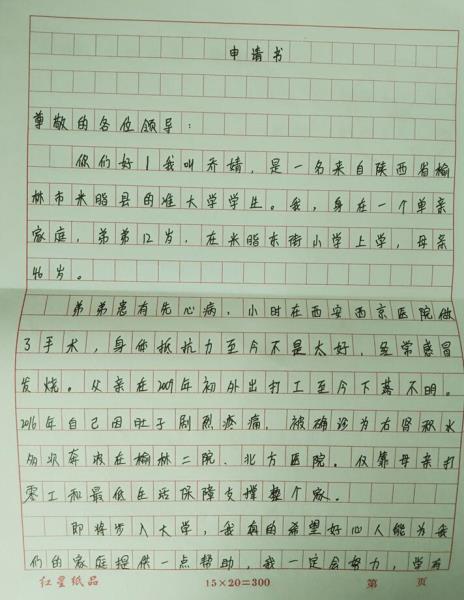 申请书
尊敬的各位领导：
你们好！我叫乔婧，是一名来自陕西省榆
林市米脂县的准大学学生。我，身在一个单亲
家庭，弟弟12岁，在米脂东街小学上学，母亲
46岁。
弟弟患有先心病，小时在西安西京医院做
了手术，身体抵抗力至今不是太好，经常感冒
发烧。父亲在2009年初外出打工至今下落不明。
2016年自己因肚子剧烈疼痛，被确诊为右肾积水
多次奔波在榆林二院、北方医院。仅靠母亲打
零工和最低生活保障支撑整个家。
即将步入大学，我真的希望好心人能为我
们的家庭提供一点帮助，我一定会努力，学有
红星纸品 15×20=300 第 页